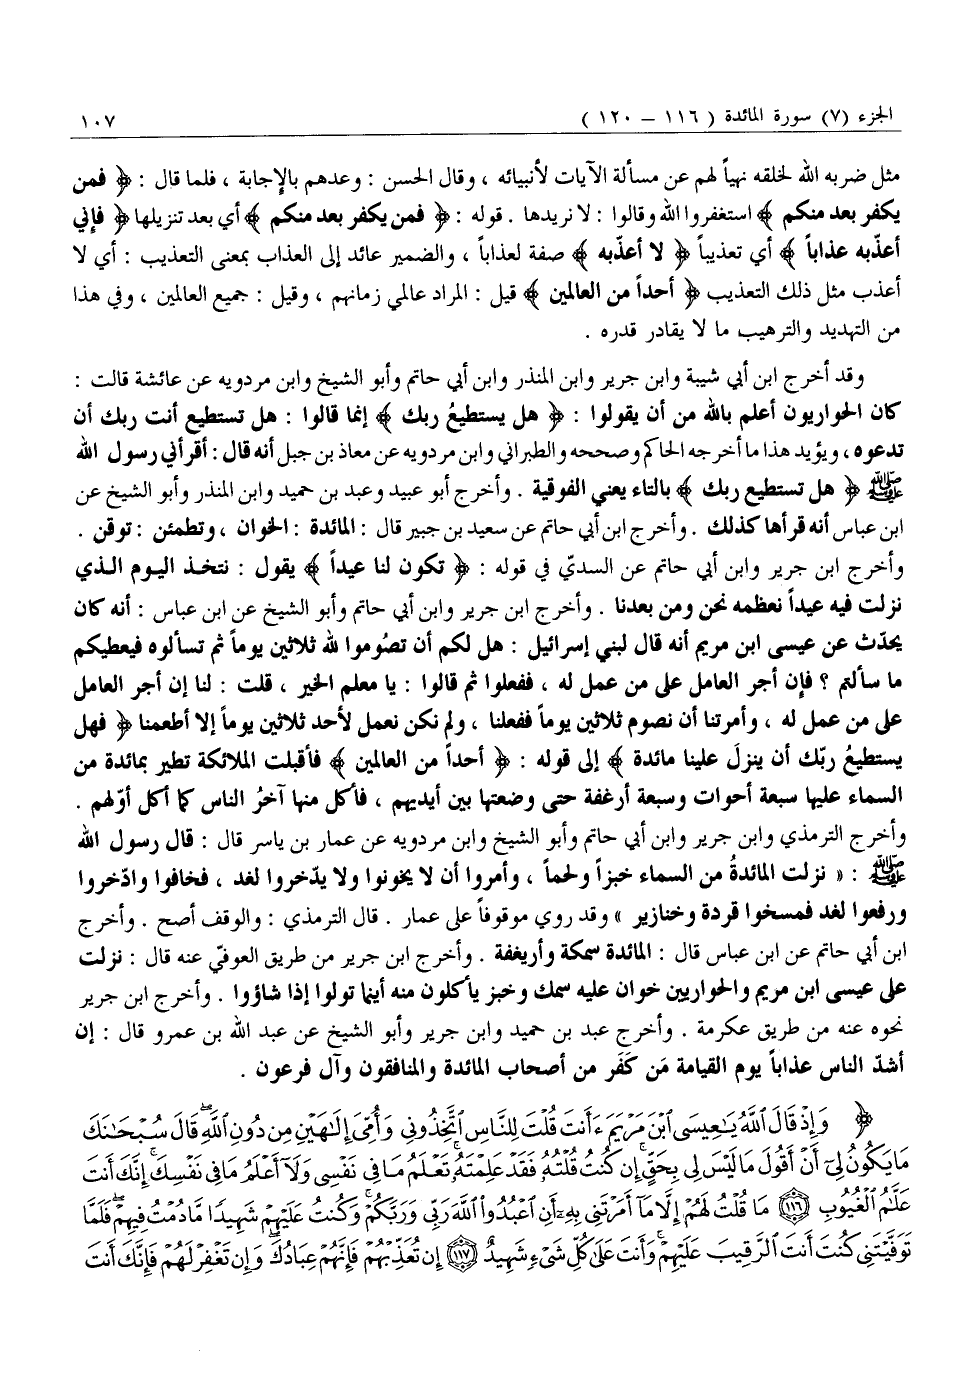 الجزء (٧) سورة المائدة ( ١١٦ – ١٢٠ )
١٠٧
مثل ضربه الله لخلقه نهياً لهم عن مسألة الآيات لأنبيائه ، وقال الحسن : وعدهم بالإجابة ، فلما قال : ﴿ فمن
يكفر بعد منكم ﴾ استغفروا الله وقالوا : لا نريدها . قوله : ﴿ فمن يكفر بعد منكم ﴾ أي بعد تنزيلها ﴿ فإني
أعذّبه عذاباً ﴾ أي تعذيباً ﴿ لا أعذّبه ﴾ صفة لعذاباً ، والضمير عائد إلى العذاب بمعنى التعذيب : أي لا
أعذب مثل ذلك التعذيب ﴿ أحداً من العالمين ﴾ قيل : المراد عالمي زمانهم ، وقيل : جميع العالمين ، وفي هذا
من التهديد والترهيب ما لا يقادر قدره .
وقد أخرج ابن أبي شيبة وابن جرير وابن المنذر وابن أبي حاتم وأبو الشيخ وابن مردويه عن عائشة قالت :
كان الحواريون أعلم بالله من أن يقولوا : ﴿ هل يستطيعُ ربك ﴾ إنما قالوا : هل تستطيع أنت ربك أن
تدعوه ، ويؤيد هذا ما أخرجه الحاكم وصححه والطبراني وابن مردويه عن معاذ بن جبل أنه قال : أقرأني رسول الله
ﷺ ﴿ هل تستطيع ربك ﴾ بالتاء يعني الفوقية . وأخرج أبو عبيد وعبد بن حميد وابن المنذر وأبو الشيخ عن
ابن عباس أنه قرأها كذلك . وأخرج ابن أبي حاتم عن سعيد بن جبير قال : المائدة : الخوان ، وتطمئن : توقن .
وأخرج ابن جرير وابن أبي حاتم عن السديّ في قوله : ﴿ تكون لنا عيداً ﴾ يقول : نتخذ اليوم الذي
نزلت فيه عيداً نعظمه نحن ومن بعدنا . وأخرج ابن جرير وابن أبي حاتم وأبو الشيخ عن ابن عباس : أنه كان
يحدّث عن عيسى ابن مريم أنه قال لبني إسرائيل : هل لكم أن تصُوموا لله ثلاثين يوماً ثم تسألوه فيعطيكم
ما سألتم ؟ فإن أجر العامل على من عمل له ، ففعلوا ثم قالوا : يا معلم الخير ، قلت : لنا إن أجر العامل
على من عمل له ، وأمرتنا أن نصوم ثلاثين يوماً ففعلنا ، ولم نكن نعمل لأحد ثلاثين يوماً إلا أطعمنا ﴿ فهل
يستطيعُ ربّك أن ينزلَ علينا مائدة ﴾ إلى قوله : ﴿ أحداً من العالمين ﴾ فأقبلت الملائكة تطير بمائدة من
السماء عليها سبعة أحوات وسبعة أرغفة حتى وضعتها بين أيديهم ، فأكل منها آخرُ الناس كما أكل أوّلهم .
وأخرج الترمذي وابن جرير وابن أبي حاتم وأبو الشيخ وابن مردويه عن عمار بن ياسر قال : قال رسول الله
ﷺ : « نزلت المائدةُ من السماء خبزاً ولحماً ، وأمروا أن لا يخونوا ولا يدّخروا لغد ، فخافوا وادّخروا
ورفعوا لغد فمسخوا قردة وخنازير » وقد روي موقوفاً على عمار . قال الترمذي : والوقف أصح . وأخرج
ابن أبي حاتم عن ابن عباس قال : المائدة سمكة وأريغفة . وأخرج ابن جرير من طريق العوفيّ عنه قال : نزلت
على عيسى ابن مريم والحواريين خوان عليه سمك وخبز يأكلون منه أينما تولوا إذا شاؤوا . وأخرج ابن جرير
نحوه عنه من طريق عكرمة . وأخرج عبد بن حميد وابن جرير وأبو الشيخ عن عبد الله بن عمرو قال : إن
أشدّ الناس عذاباً يوم القيامة مَن كَفَر من أصحاب المائدة والمنافقون وآل فرعون .
﴿ وَإِذْ قَالَ ٱللَّهُ يَٰعِيسَى ٱبْنَ مَرْيَمَ ءَأَنتَ قُلْتَ لِلنَّاسِ ٱتَّخِذُونِى وَأُمِّىَ إِلَٰهَيْنِ مِن دُونِ ٱللَّهِۖ قَالَ سُبْحَٰنَكَ
مَا يَكُونُ لِىٓ أَنْ أَقُولَ مَا لَيْسَ لِى بِحَقٍّۚ إِن كُنتُ قُلْتُهُۥ فَقَدْ عَلِمْتَهُۥۚ تَعْلَمُ مَا فِى نَفْسِى وَلَآ أَعْلَمُ مَا فِى نَفْسِكَۚ إِنَّكَ أَنتَ
عَلَّٰمُ ٱلْغُيُوبِ ١١٦ مَا قُلْتُ لَهُمْ إِلَّا مَآ أَمَرْتَنِى بِهِۦٓ أَنِ ٱعْبُدُوا۟ ٱللَّهَ رَبِّى وَرَبَّكُمْۚ وَكُنتُ عَلَيْهِمْ شَهِيدًا مَّا دُمْتُ فِيهِمْۖ فَلَمَّا
تَوَفَّيْتَنِى كُنتَ أَنتَ ٱلرَّقِيبَ عَلَيْهِمْۚ وَأَنتَ عَلَىٰ كُلِّ شَىْءٍ شَهِيدٌ ١١٧ إِن تُعَذِّبْهُمْ فَإِنَّهُمْ عِبَادُكَۖ وَإِن تَغْفِرْ لَهُمْ فَإِنَّكَ أَنتَ